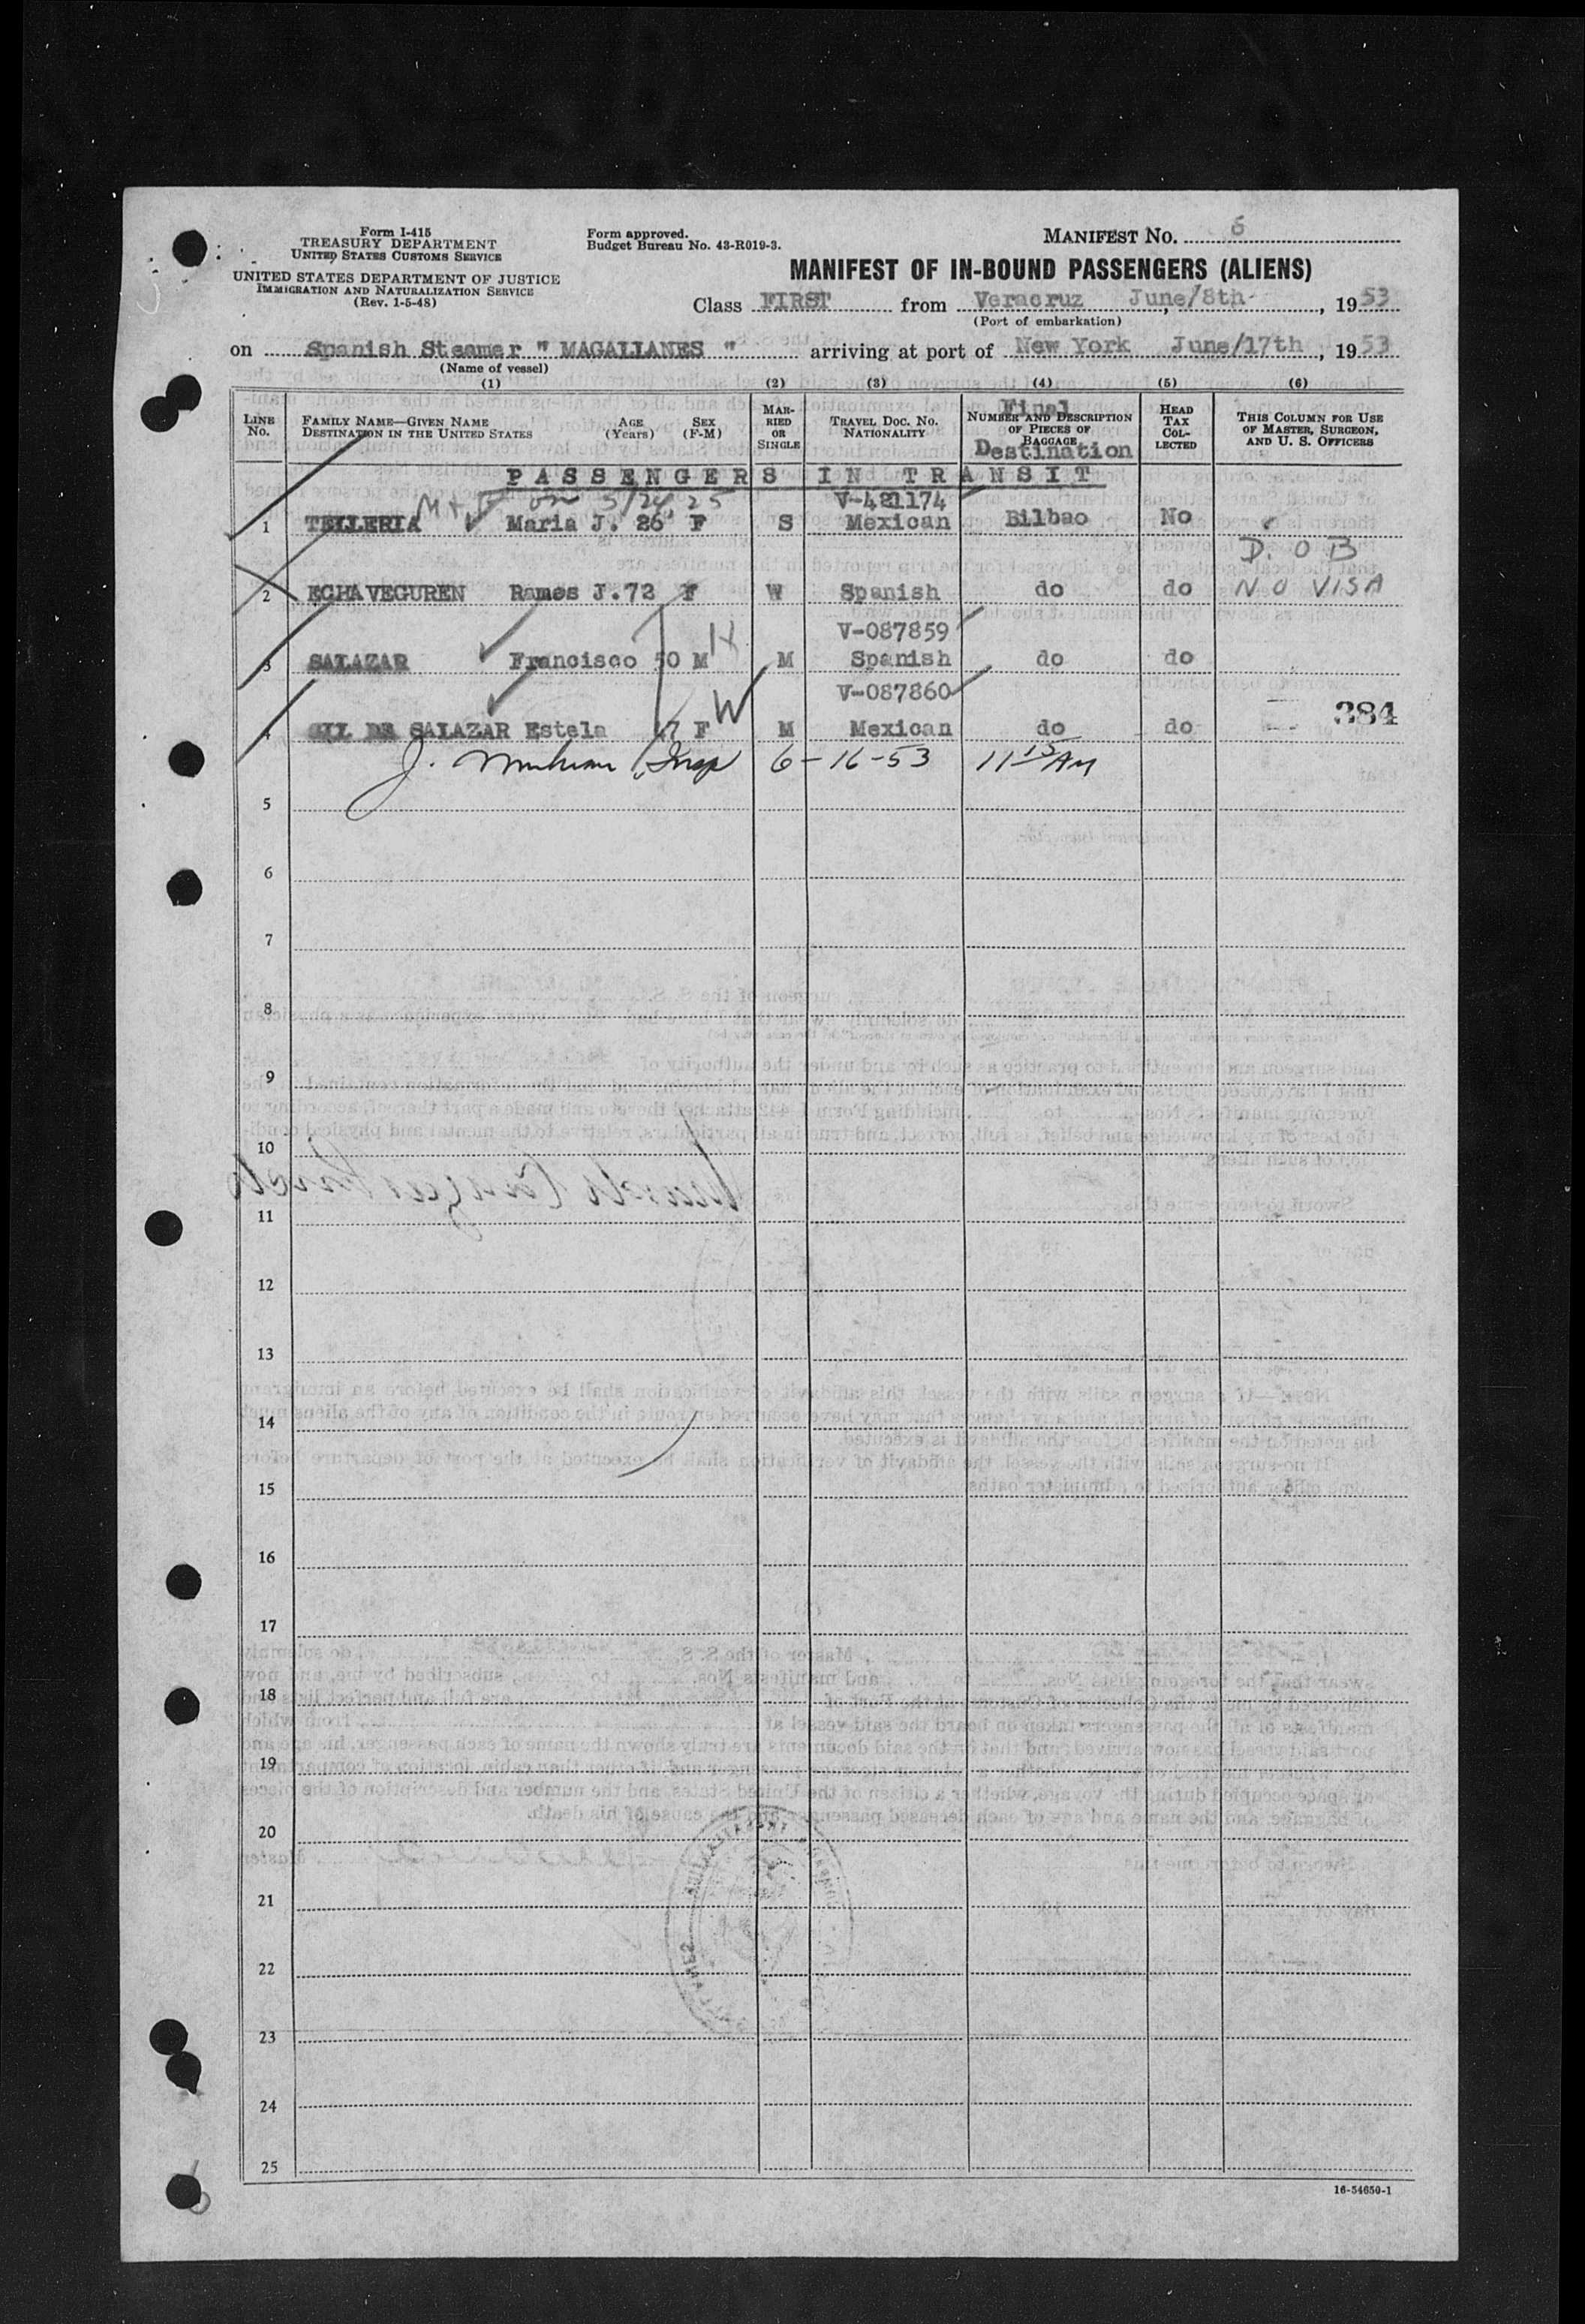 Form I-415
TREASURY DEPARTMENT
UNITED STATES CUSTOMS SERVICE
UNITED STATES DEPARTMENT OF JUSTICE
IMMIGRATION AND NATURALIZATION SERVICE
(Rev. 1-5-48)
Form approved.
Budget Bureau No. 43-R019-3.
MANIFEST NO. 5
MANIFEST OF IN-BOUND PASSENGERS (ALIENS)
Class FIRST from Veracruz, June/8th, 1953
(Port of embarkation)
on Spanish Steamer " MAGALLANES " arriving at port of New York June/17th, 1953
(Name of vessel)
(1) (2) (3) (4) (5) (6)
LINE No. FAMILY NAME—GIVEN NAME DESTINATION IN THE UNITED STATES AGE (Years) SEX (F-M) MARRIED OR SINGLE TRAVEL DOC. NO. NATIONALITY NUMBER AND DESCRIPTION OF PIECES OF BAGGAGE Final Destination HEAD TAX COLLECTED THIS COLUMN FOR USE OF MASTER, SURGEON, AND U. S. OFFICERS
PASSENGERS IN TRANSIT
on 5/24/25 V-421174
1 TELLERIA Maria J. 26 F S Mexican Bilbao No
D. O B
2 ECHAVEGUREN Rames J. 72 F W Spanish do do NO VISA
H V-087859
3 SALAZAR Francisco 50 M M Spanish do do
W V-087860
4 GIL DE SALAZAR Estela 47 F M Mexican do do 384
J. Insp 6-16-53 11 15 AM
5
6
7
8
9
10
11
12
13
14
15
16
17
18
19
20
21
22
23
24
25
16-54650-1